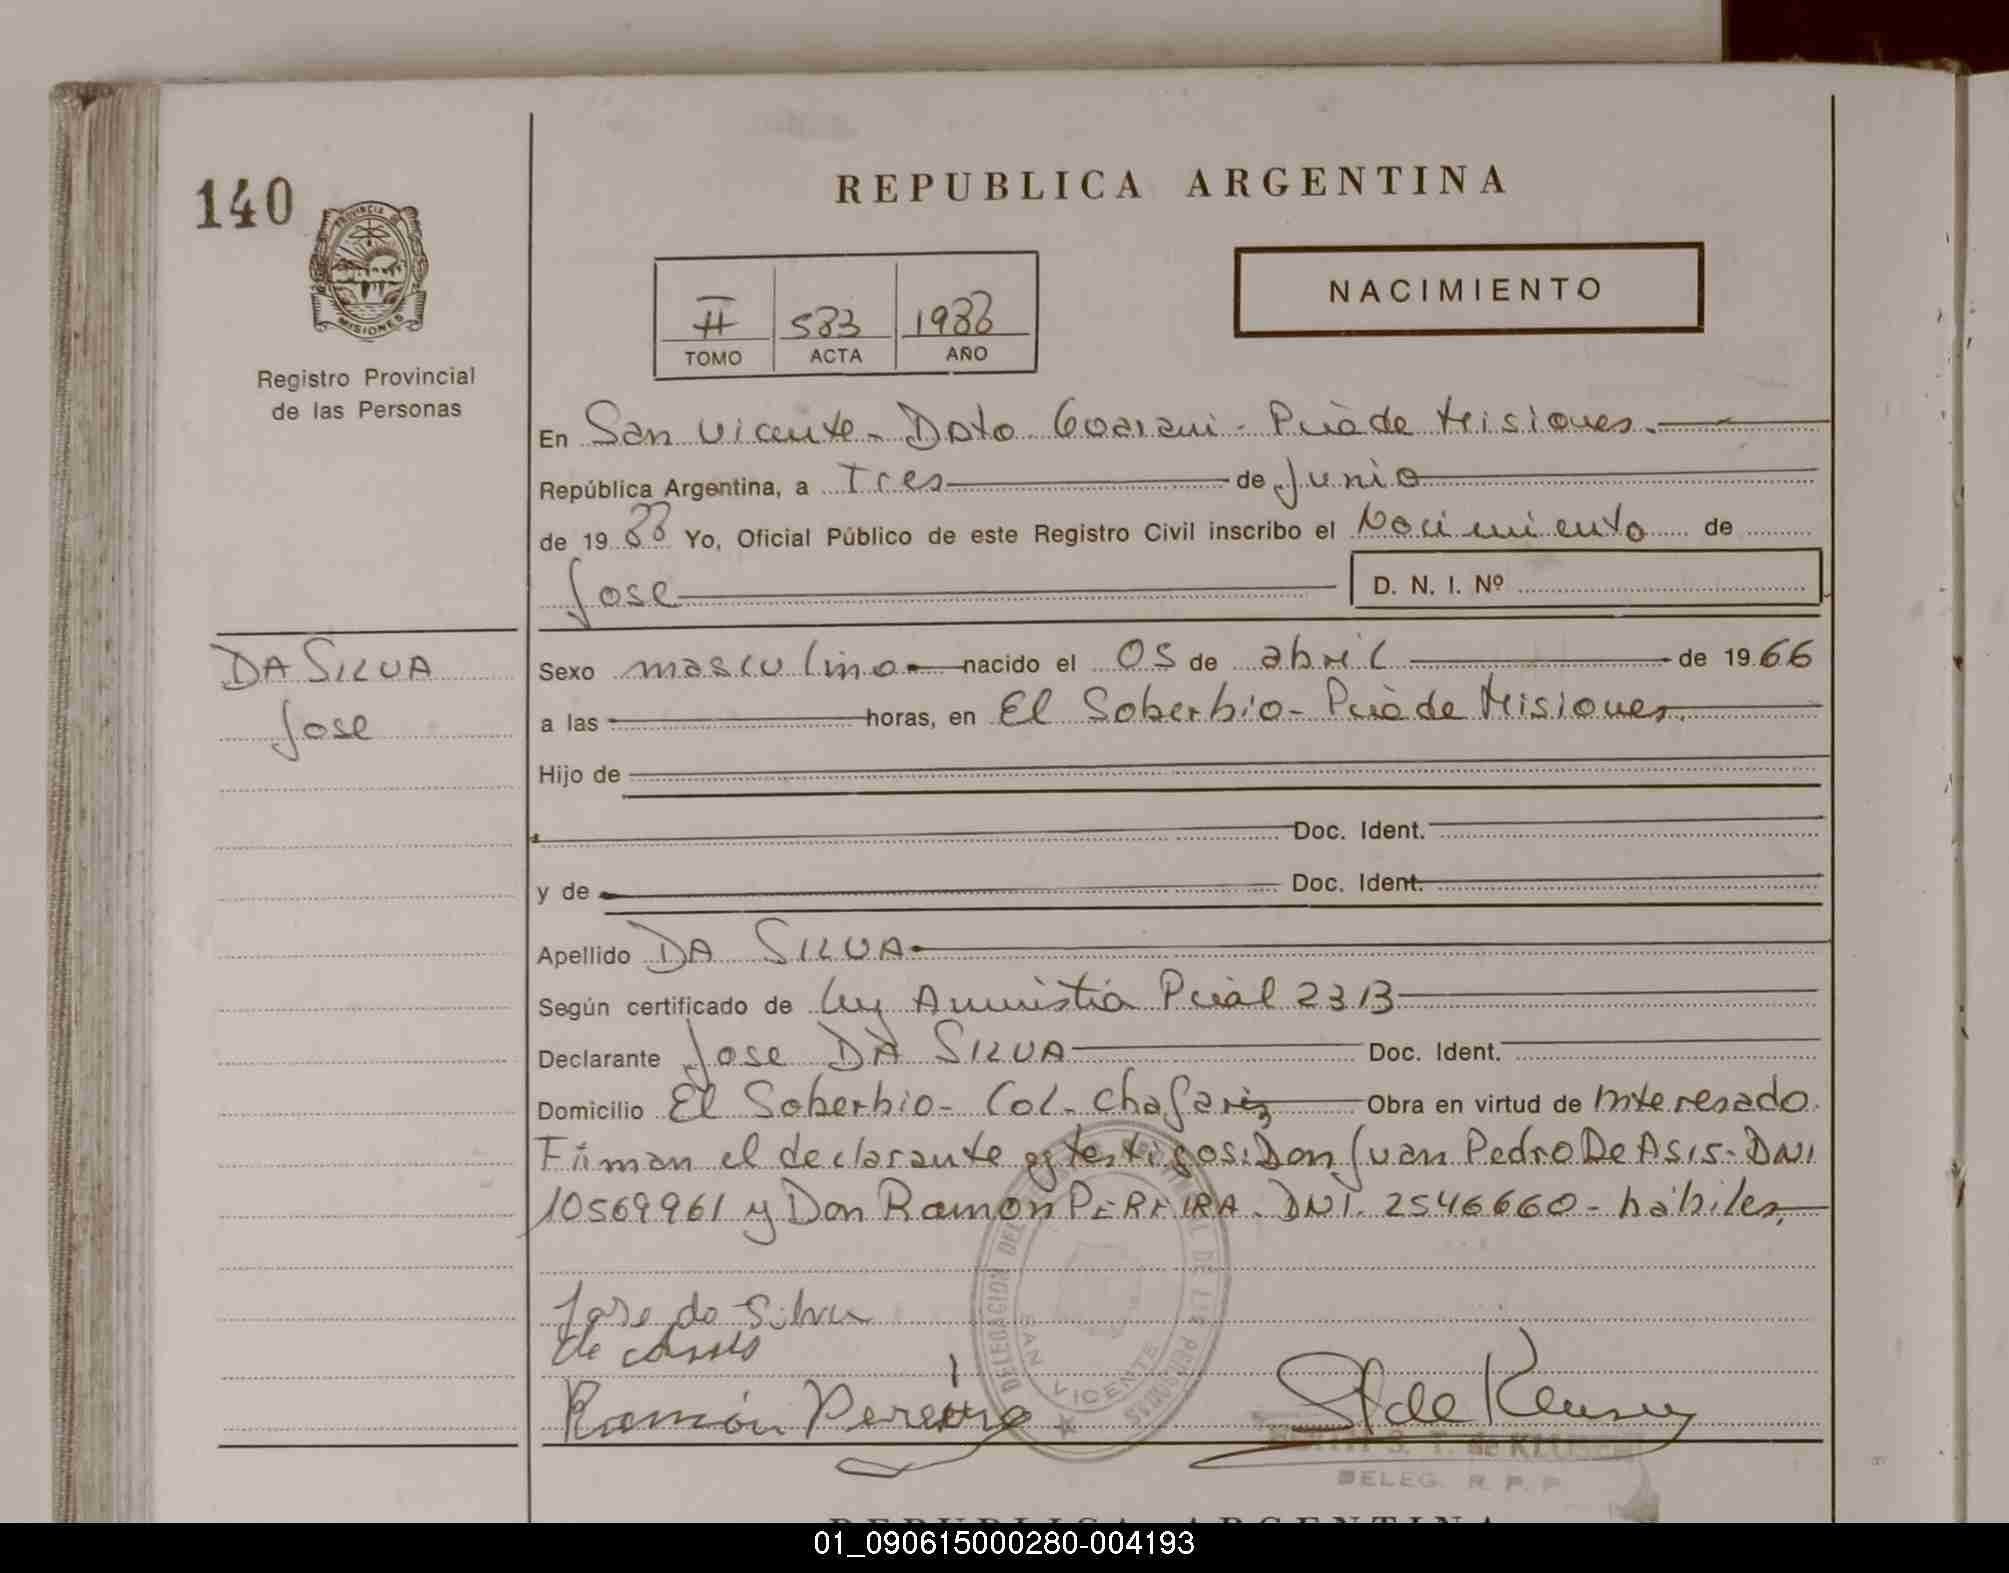 140
PROVINCIA DE
MISIONES
Registro Provincial
de las Personas
REPUBLICA ARGENTINA
II 583 1988
TOMO ACTA AÑO
NACIMIENTO
En San Vicente - Dpto Guarani - Pcia de Misiones.
República Argentina, a Tres de Junio
de 19 88 Yo, Oficial Público de este Registro Civil inscribo el Nacimiento de
Jose D. N. I. Nº
DA SILVA
Jose
Sexo masculino nacido el 05 de abril de 1966
a las horas, en El Soberbio - Pcia de Misiones.
Hijo de
Doc. Ident.
y de Doc. Ident.
Apellido DA SILVA
Según certificado de Ley Amnistia Pcial 2313
Declarante Jose DA SILVA Doc. Ident.
Domicilio El Soberbio - Col. Chafariz Obra en virtud de Interesado.
Firman el declarante y testigos: Don Juan Pedro De Asis - DNI
10569961 y Don Ramon PEREIRA. DNI. 2546660 - hábiles.
Jose da Silva
de
Ramón Pereira
DELEGACION DEL
DE LAS PERSONAS
SAN VICENTE
S. T. de
DELEG. R. P. P.
REPUBLICA ARGENTINA
01_090615000280-004193